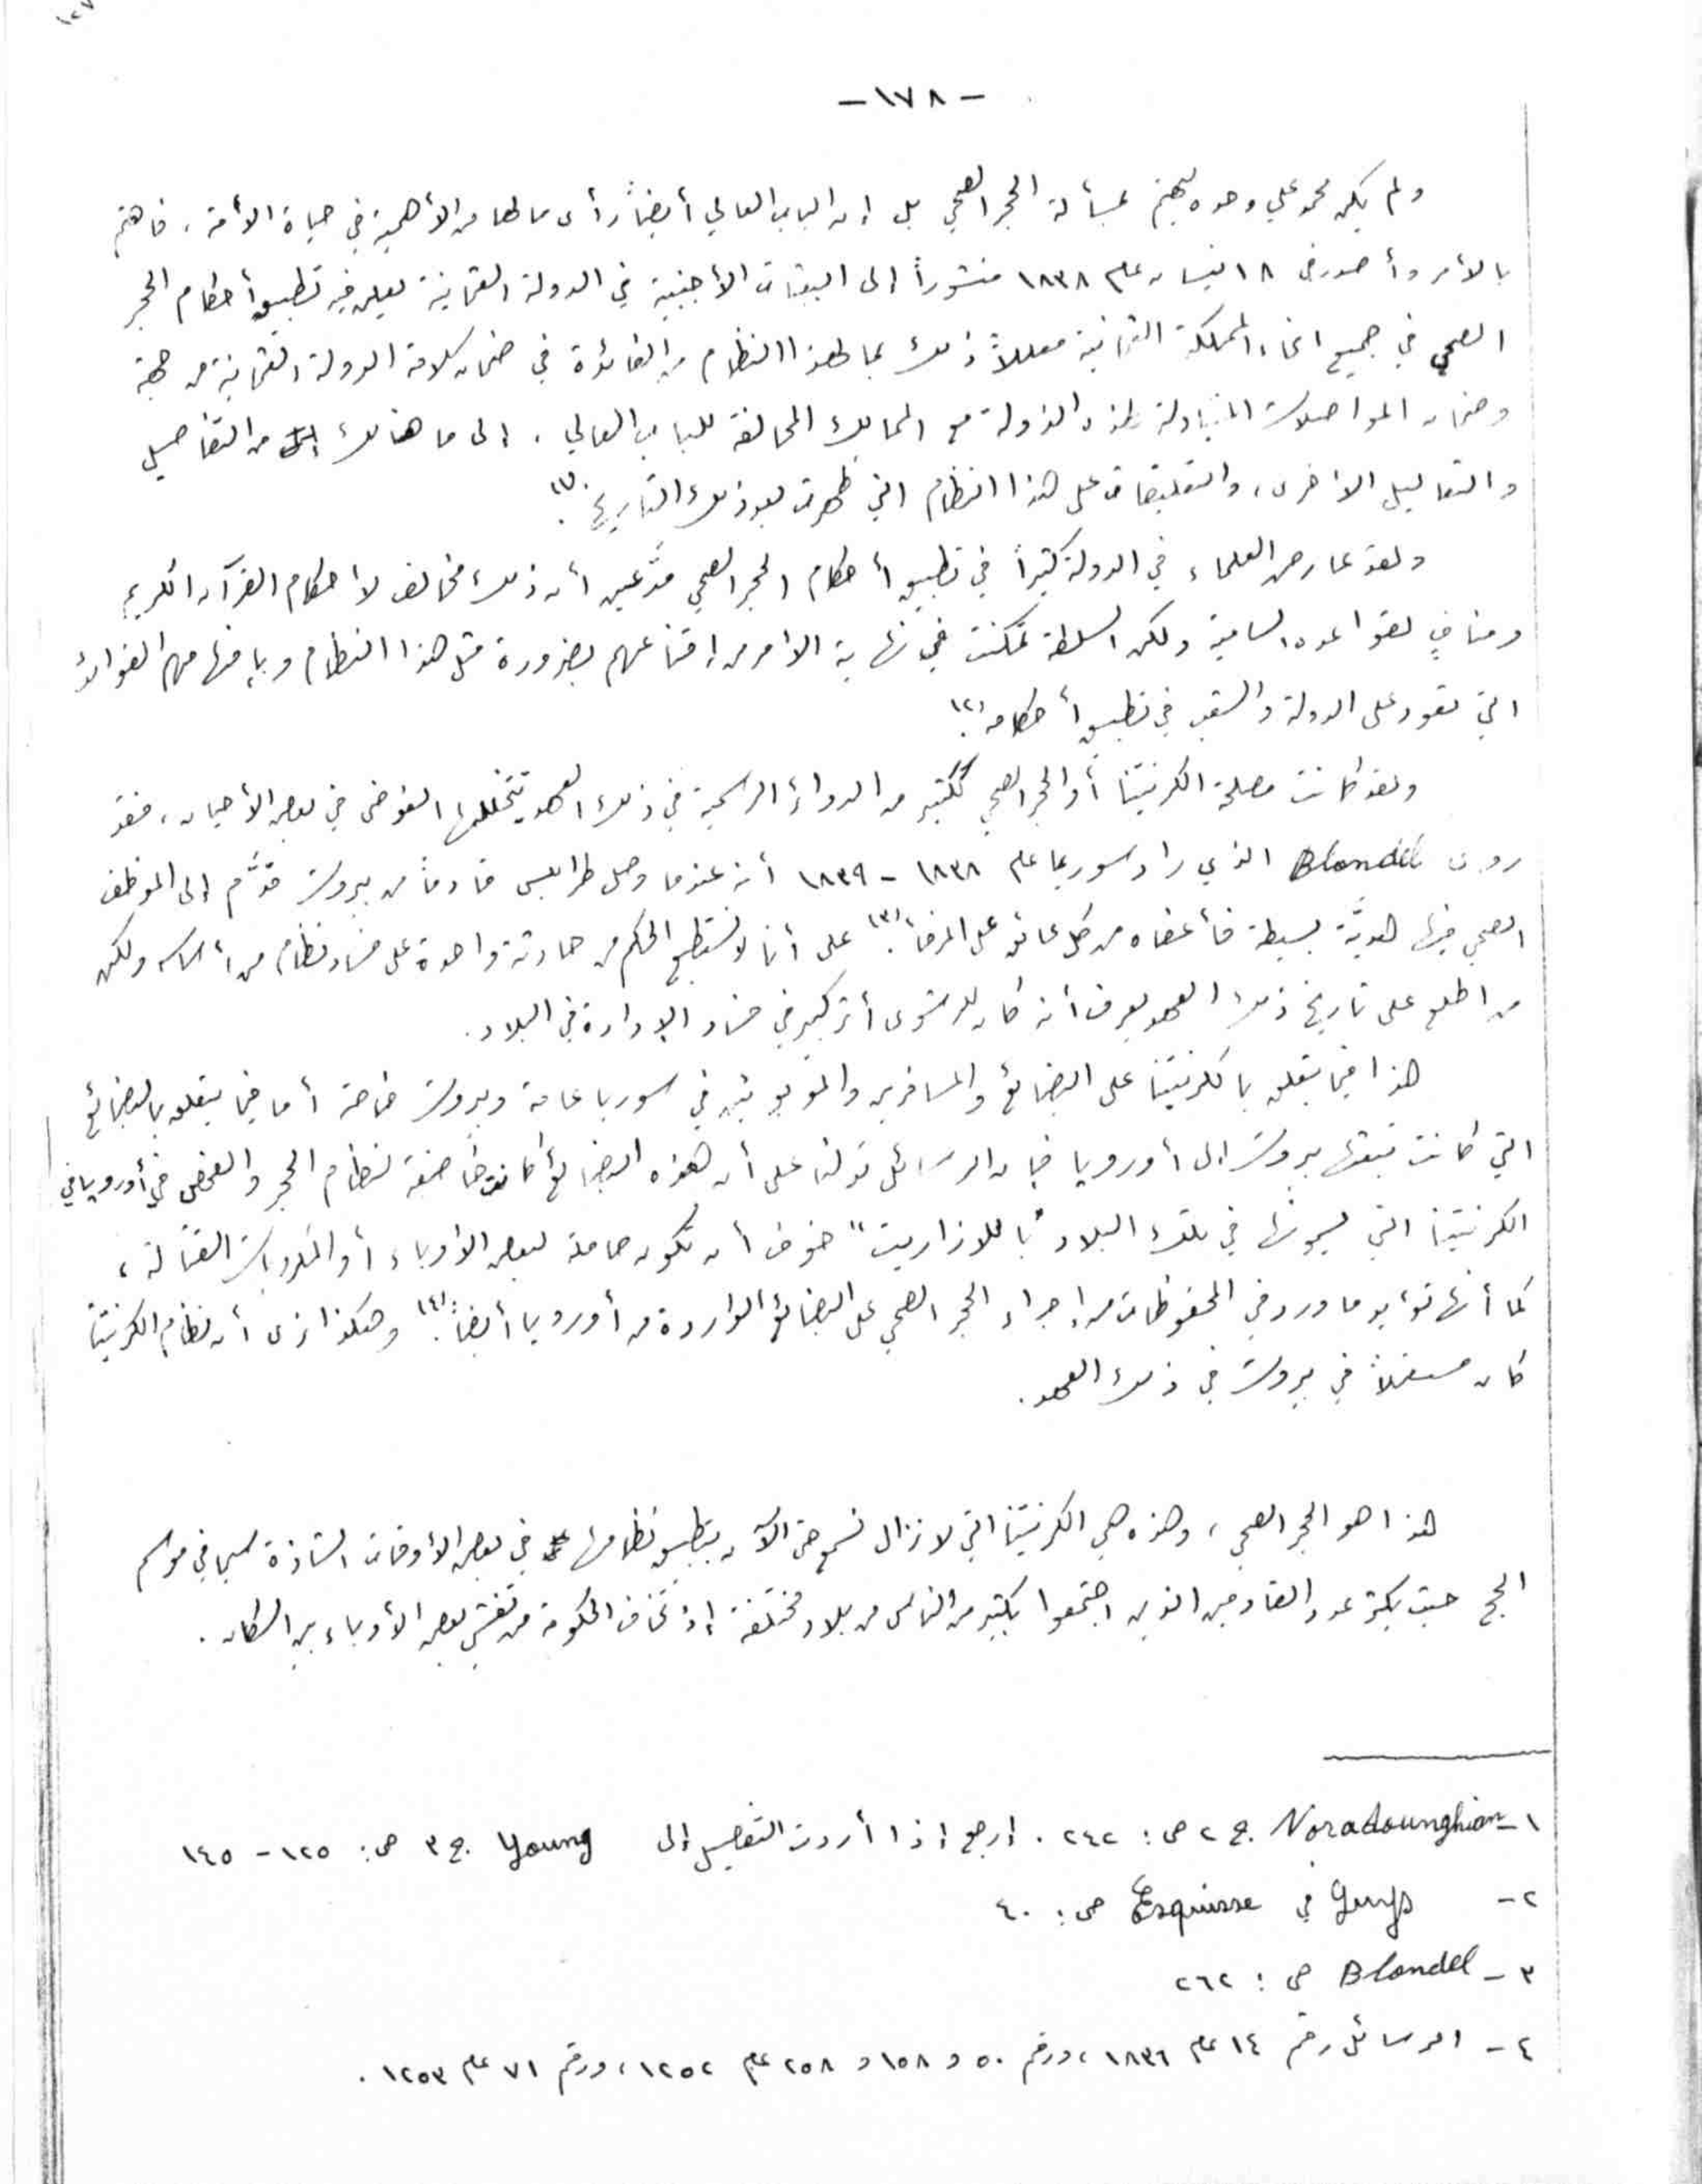 - ١٧٨ -
ولم يكن محمد علي وحده ليهتم بمسألة الحجر الصحي بل إن الباب العالي أيضاً رأى ما لها من الأهمية في حياة الأمة ، فاهتم
بالأمر وأصدر في ١٨ نيسان عام ١٨٣٨ منشوراً إلى البعثات الأجنبية في الدولة العثمانية يعلن فيه تطبيق أحكام الحجر
الصحي في جميع انحاء المملكة العثمانية معللاً ذلك بما لهذا النظام من الفائدة في ضمان سلامة الدولة العثمانية من جهة
وضمان المواصلات المتبادلة لهذه الدولة مع الممالك المحالفة للباب العالي . إلى ما هنالك من التفاصيل
والتعاليل الأخرى ، والتعليقات على هذا النظام التي ظهرت بعد ذلك التاريخ (١).
ولقد عارض العلماء في الدولة كثيراً في تطبيق أحكام الحجر الصحي مدَّعين أن ذلك مخالف لأحكام القرآن الكريم
ومنافٍ لقواعده السامية ولكن السلطة تمكنت في نهاية الأمر من إقناعهم بضرورة مثل هذا النظام وبإفهامهم الفوائد
التي تعود على الدولة والشعب في تطبيق أحكامه (٢).
ولقد كانت مصلحة الكرنتينا أو الحجر الصحي ككثير من الدوائر الرسمية في ذلك العهد يتخللها الفوضى في بعض الأحيان ، فقد
روى Blondel الذي زار سوريا عام ١٨٣٨ - ١٨٣٩ أنه عندما وصل طرابلس قادماً من بيروت قدَّم إلى الموظف
الصحي فيها هديَّة بسيطة فأعفاه من كل عائق على المرفأ (٣). على أنا لا نستطيع الحكم من حادثة واحدة على فساد نظام من أساسه ولكن
من اطلع على تاريخ ذلك العهد يعرف أنه كان للرشوى أثر كبير في فساد الإدارة في البلاد .
هذا فيما يتعلق بالكرنتينا على البضائع والمسافرين والموبوئين في سوريا عامة وبيروت خاصة أما فيما يتعلق بالبضائع
التي كانت تبعثها بيروت إلى أوروبا فإن الرسائل تدلنا على أن هذه البضائع كانت خاضعة لنظام الحجر والفحص في أوروبا في
الكرنتينا التي يسمونها في تلك البلاد " باللازاريت " خوف أن تكون حاملة لبعض الأوباء أو المكروبات القتالة ،
كما أنها تؤيد ما ورد في المحفوظات من إجراء الحجر الصحي على البضائع الواردة من أوروبا أيضاً (٤). وهكذا نرى أن نظام الكرنتينا
كان مستغلاً في بيروت في ذلك العهد .
هذا هو الحجر الصحي ، وهذه هي الكرنتينا التي لا نزال نسمع حتى الآن بتطبيق نظامها في بعض الأوقات الشاذة سيما في موسم
الحج حيث يكثر عدد القادمين الذين اجتمعوا بكثير من الناس من بلاد مختلفة إذ تخاف الحكومة من تفشي بعض الأوباء بين السكان .
١ - Noradounghian ج ٢ ص : ٢٤٢ . إرجع إذا أردت التفصيل إلى Young ج ٣ ص : ١٢٥ - ١٤٥
٢ - Guys في Esquisse ص : ٤٠
٣ - Blondel ص : ٢٦٢
٤ - الرسائل رقم ١٤ عام ١٨٣٦ ، ورقم ٥٠ و ١٥٨ و ٢٥٨ عام ١٢٥٢ ، ورقم ٧١ عام ١٢٥٣ .